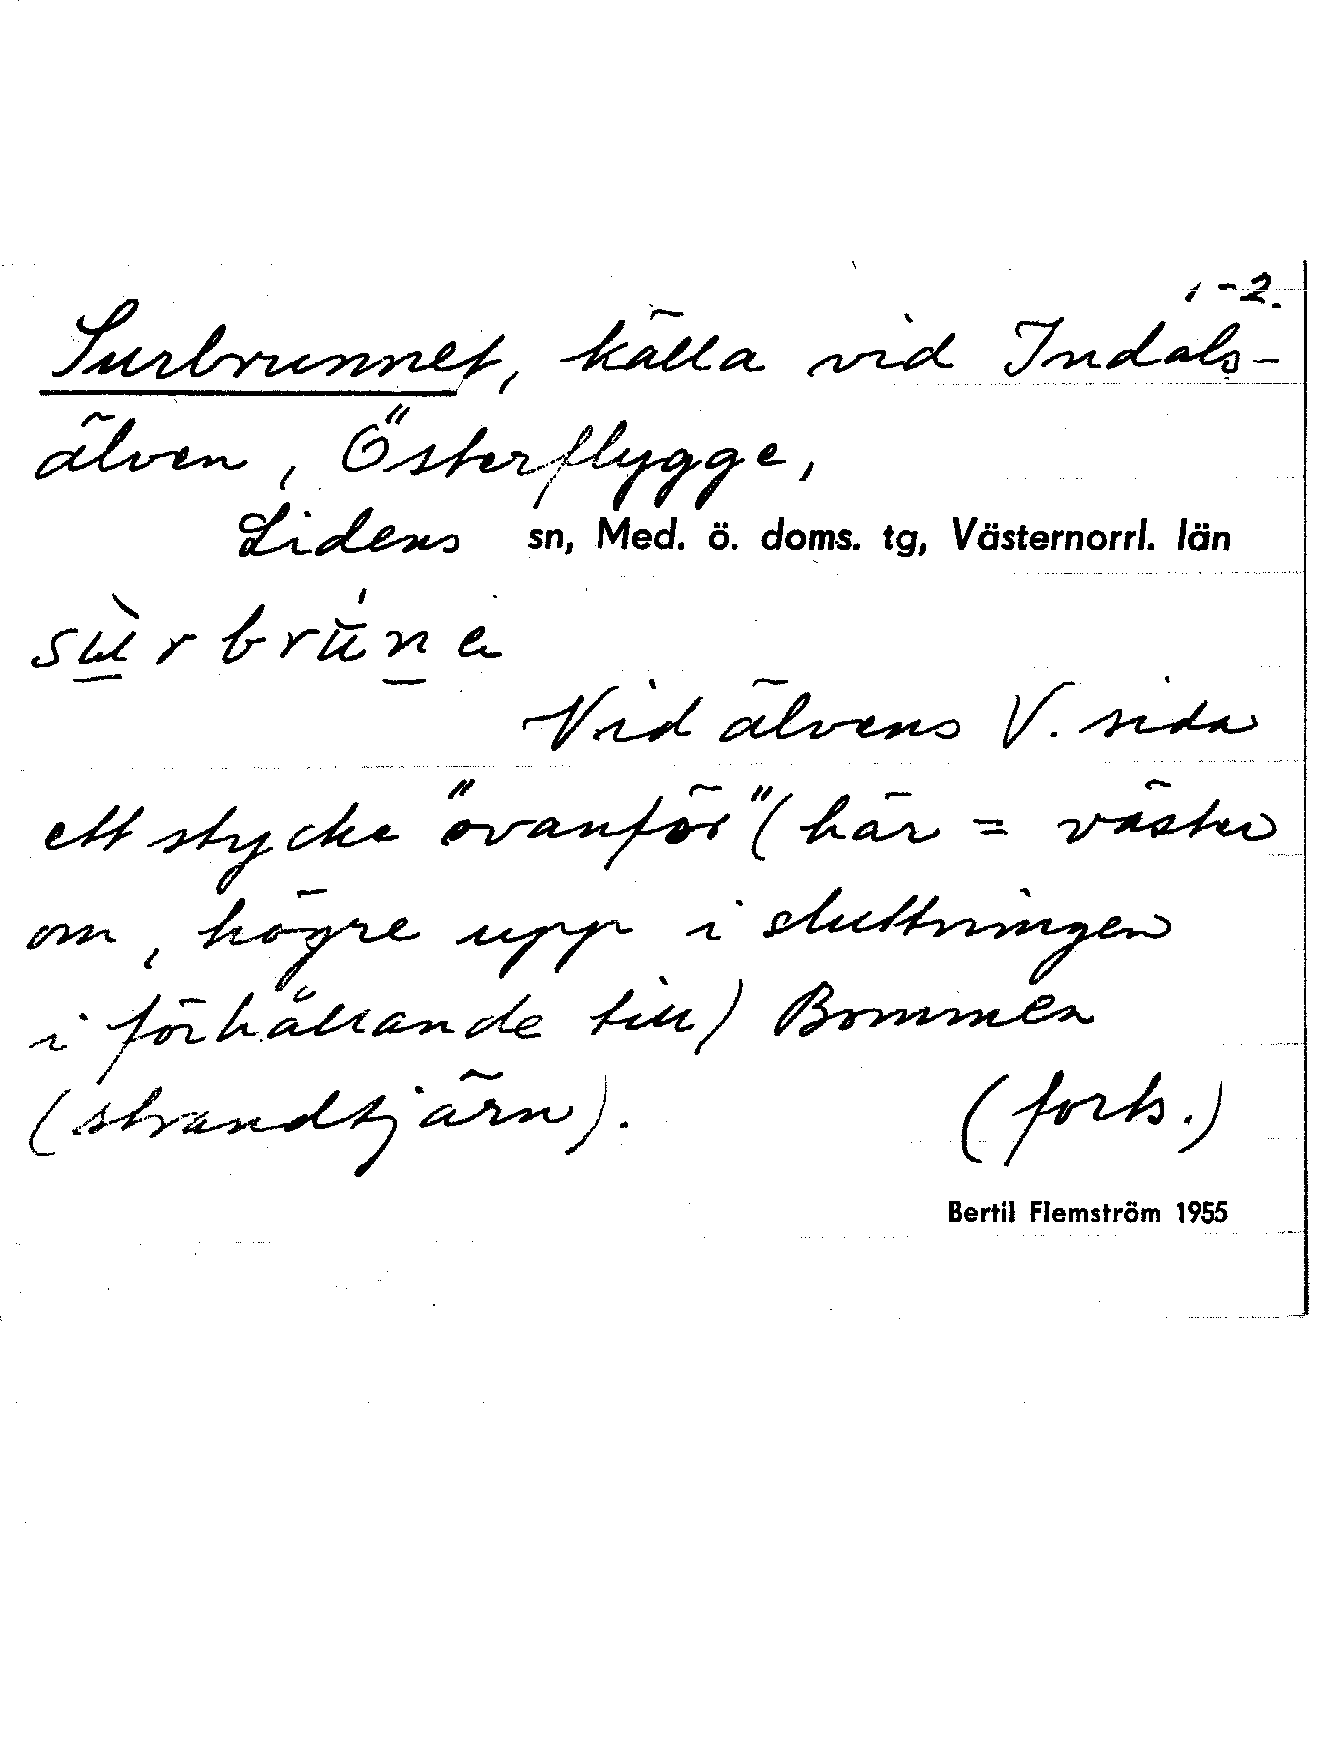 1-2.
Surbrunnet, källa vid Indals-
älven, Österflygge,
Lidens sn, Med. ö. doms. tg, Västernorrl. län
Vid älvens V. sida
ett stycke "ovanför" (här = väster
om, högre upp i sluttningen
i förhållande till) Bommen
(strandtjärn). (forts.)
Bertil Flemström 1955